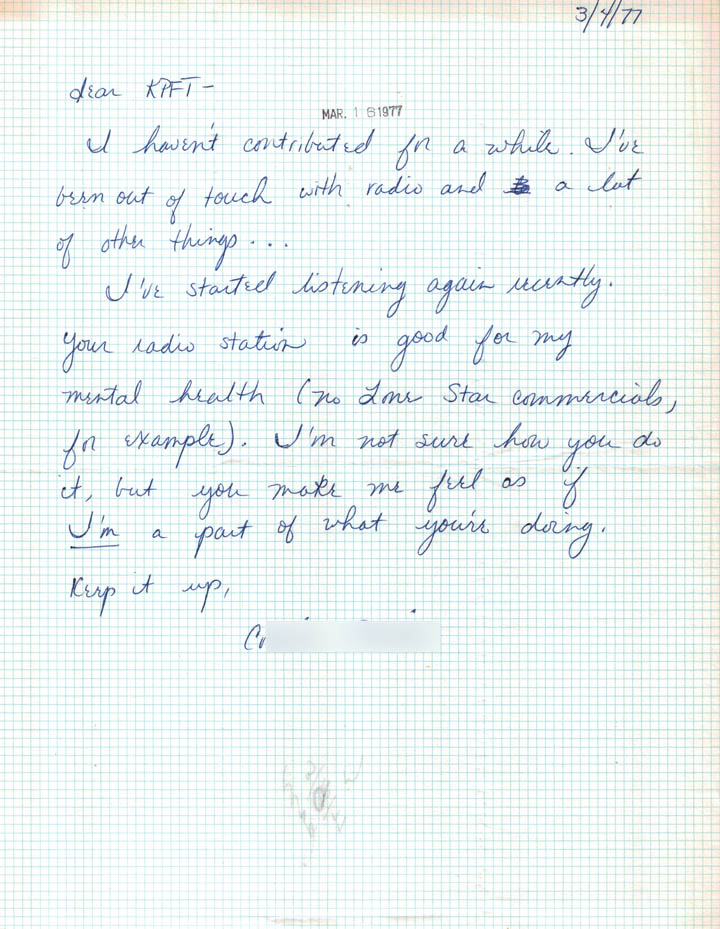 3/4/77
dear KPFT-
MAR. 16 1977
I haven't contributed for a while. I've
been out of touch with radio and a lot
of other things...
I've started listening again recently.
Your radio station is good for my
mental health (no Lone Star commercials,
for example). I'm not sure how you do
it, but you make me feel as if
I'm a part of what you're doing.
Keep it up,